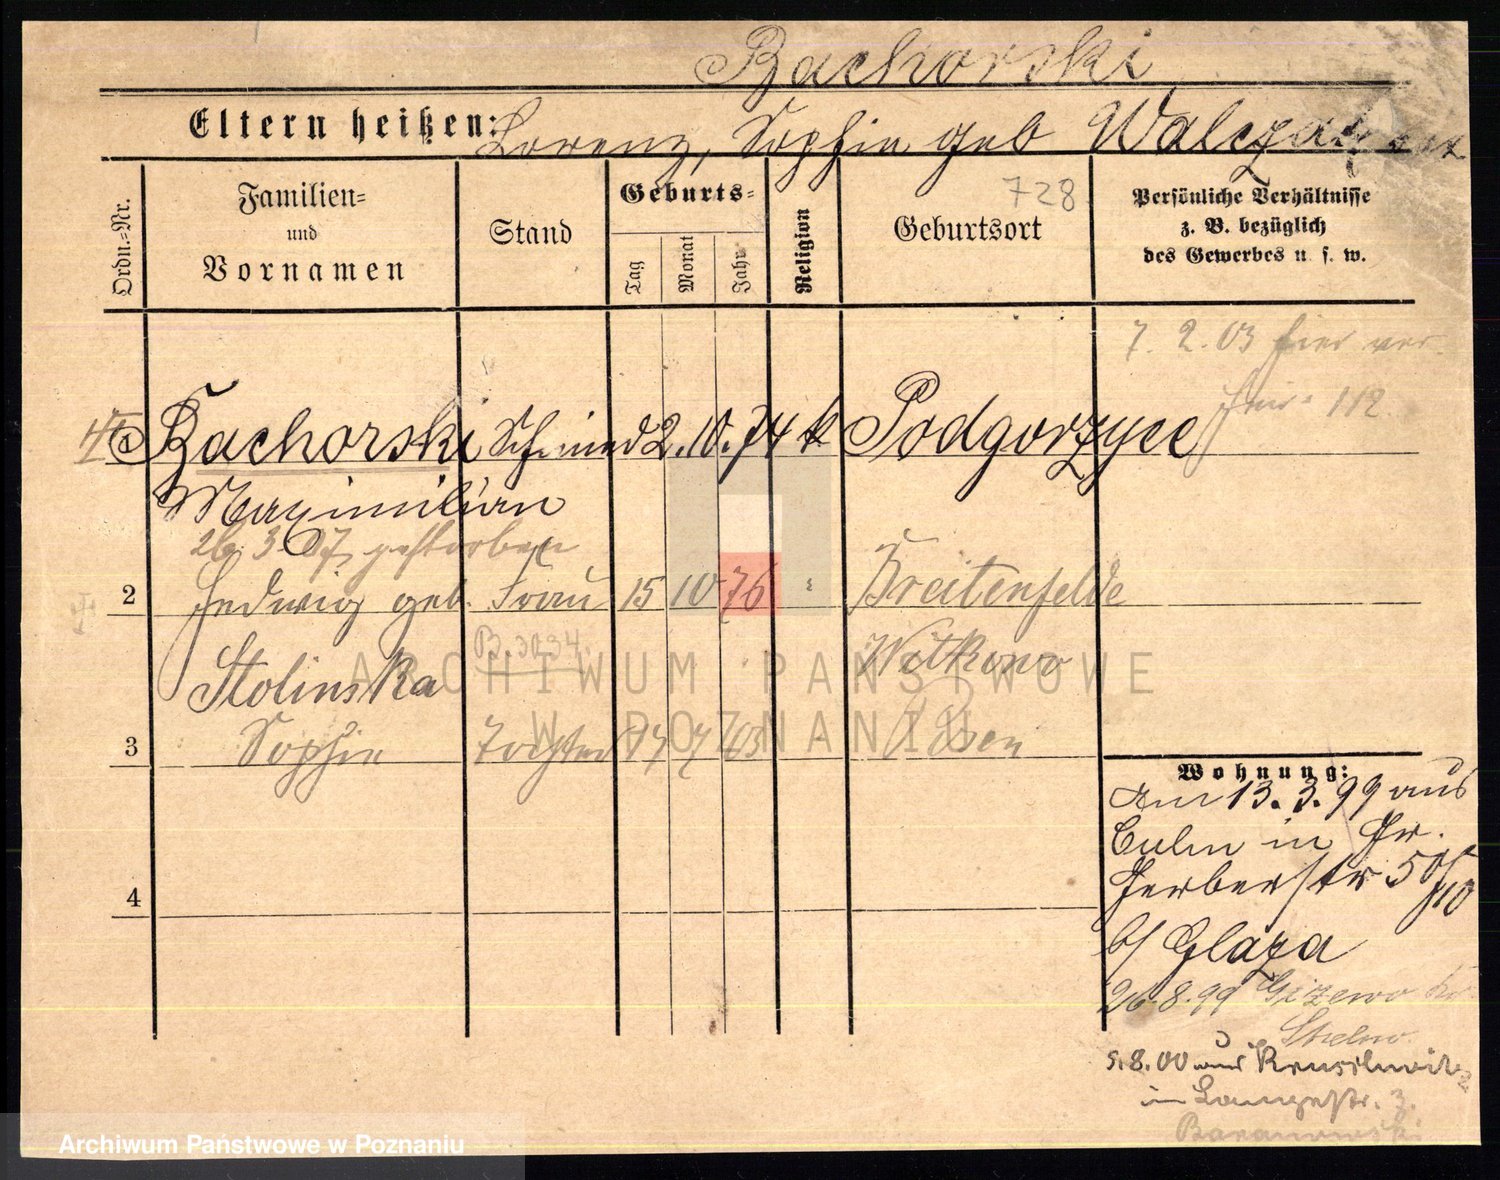 Bachorski
Eltern heißen: Lorenz, Sophie geb Walczak
Ordn.=Nr.
Familien= und Vornamen
Stand
Geburts=
Tag
Monat
Jahr
Religion
728
Geburtsort
Persönliche Verhältnisse
z. B. bezüglich
des Gewerbes u. s. w.
7. 2. 03 hier ver.
112.
1 Bachorski Schmied 2. 10. 74 k Podgorzyce
Maximilian
26. 3. 07 gestorben
2 Hedwig geb. Frau 15 10 76 Breitenfelde
B. 3034. Witkowo
Stolinska
3 Sophie Tochter 17 03 Posen
4
Wohnung:
Am 13. 3. 99 aus
Culm in Gr.
Gerberstr 50
b/ Glaza
26. 8. 99 Gizewo Kr.
Strelno.
5. 8. 00 aus
in Langestr. 3.
Baranowski
ARCHIWUM PAŃSTWOWE
W POZNANIU
Archiwum Państwowe w Poznaniu